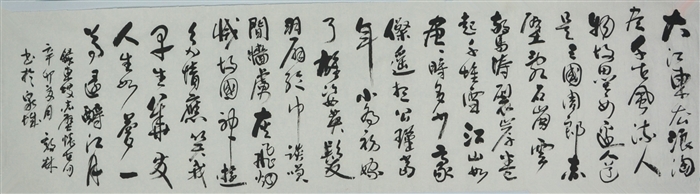 大江東去浪淘
盡千古風流人
物故壘西邊人道
是三國周郎赤
壁亂石崩雲
驚濤裂岸卷
起千堆雪江山如
畫一時多少豪
傑遙想公瑾當
年小喬初嫁
了雄姿英發
羽扇綸巾談笑
間檣虜灰飛烟
滅故國神遊
多情應笑我
早生華髮
人生如夢一
尊還酹江月
辛卯夏月
書於泉城